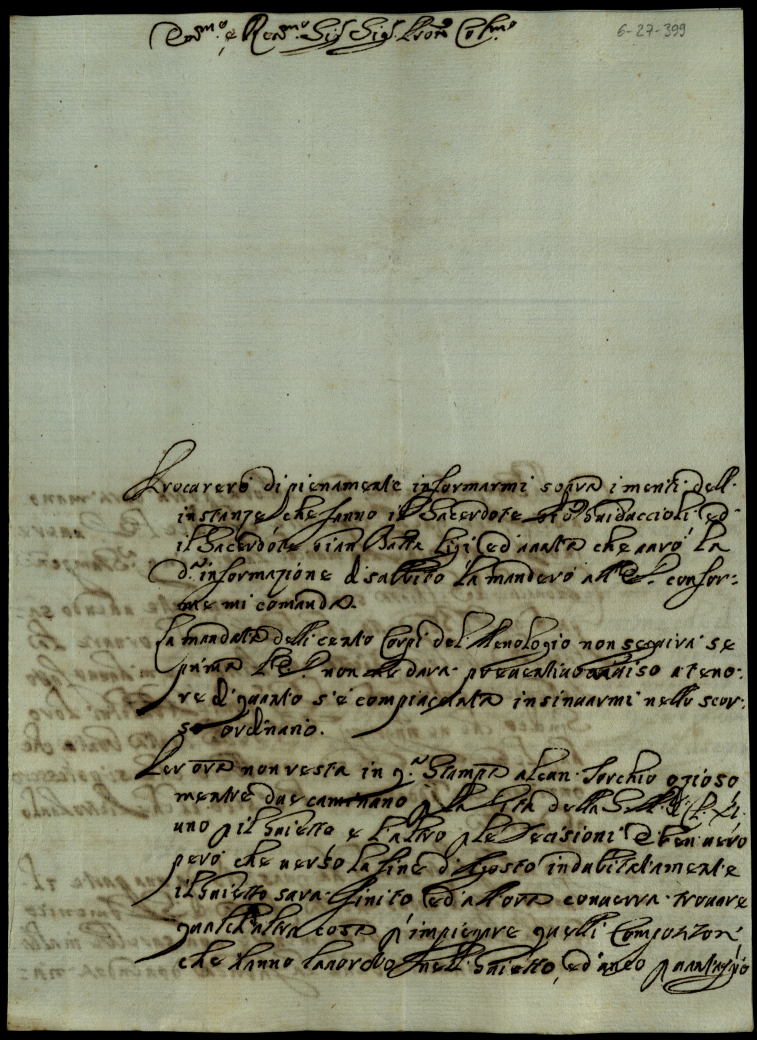 Em.mo e Rev.mo Sig.r Sig.r Pron Col.mo
6-27-399
Procarerò di pienamente informarmi sopra i meriti dell'
instanze che fanno il Sacerdote Gio Guidaccioli ed
il Sacerdote Gian Batta Ligi ed avuta che avrò la
d.a informazione di subbito la manderò all' E. confor-
me mi comanda.
La mandata delli cento Corpi del Menologio non seguirà se
prima L'E. non ne darà preventivo avviso a teno-
re di quanto s'è compiaciuta insinuarmi nello scor-
so ordinario.
Per ora non resta in q.a Stampa alcun Torchio ozioso
mentre due caminano p la Città della
uno p il Gaietto e l'altro p le Decisioni è ben vero
però che verso la fine d'Agosto indubitatamente
il Gaietto sarà finito ed all'ora converrà trovare
qualch'altra cosa p impiegare quelli Compozitori
che hanno lavorato nell Gaietto, ed anco p